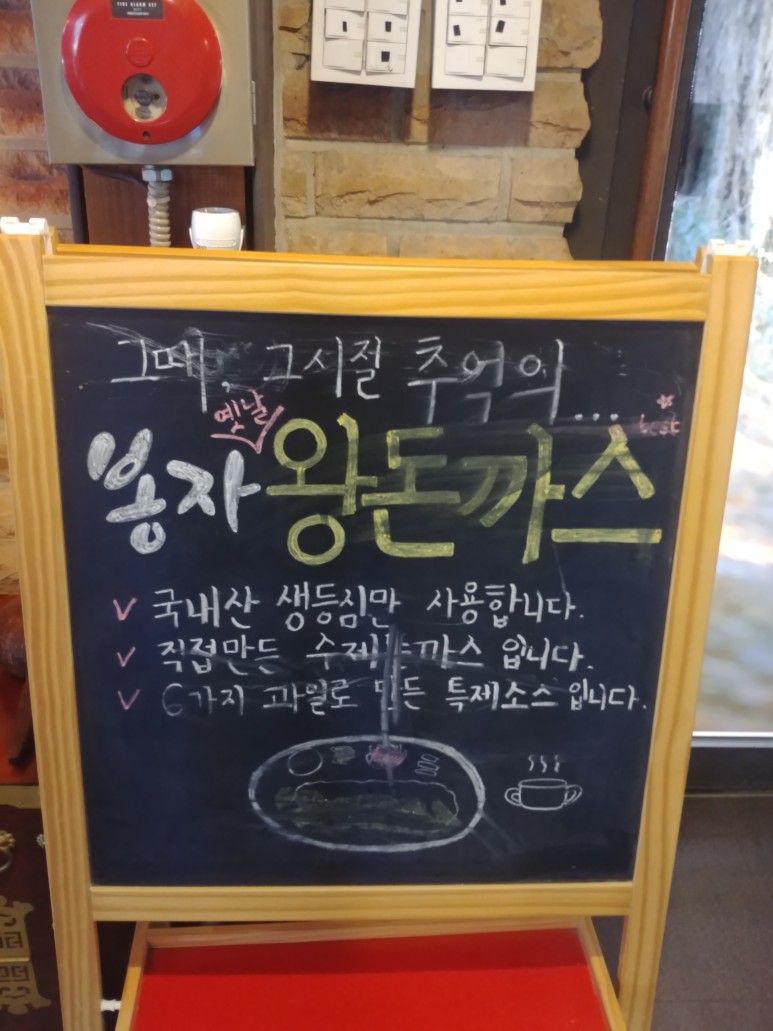 FIRE ALARM SET
그때, 그시절 추억의...
옛날
best
봉자 왕돈까스
✓ 국내산 생등심만 사용합니다.
✓ 직접만든 수제돈까스 입니다.
✓ 6가지 과일로 만든 특제소스 입니다.